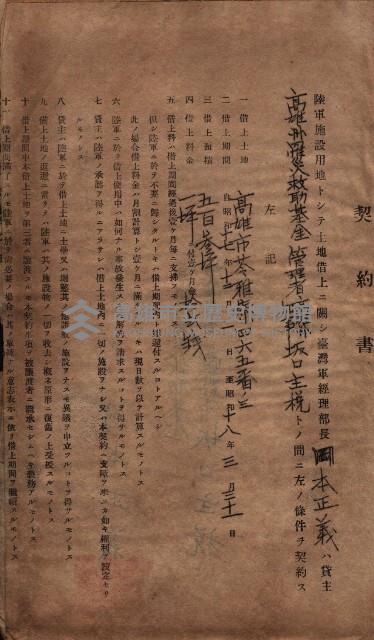 契約書
陸軍施設用地トシテ土地借上ニ關シ臺灣軍經理部長岡本正義ハ貸主
高雄州罹災救助基金管理者 坂口主税トノ間ニ左ノ條件ヲ契約ス
左記
一 借上土地 高雄市苓雅寮 四六五番ノ三
二 借上期間 自昭和十七年十二月 日 至昭和十八年三月三十一日
三 借上面積 五百 坪
四 借上料金 一坪ニ付壹ヶ月 錢
五 借上料ハ借上期間經過後壹ヶ月每ニ支拂フモノトス
但シ陸軍ニ於テ不要ニ歸シタルトキハ借上期 ニ ラズ還付スルコトアルヘシ
此ノ場合借上料金ハ月割計算トシ壹ヶ月ニ滿 キハ現日數ヲ以テ計算スルモノトス
六 陸軍ニ於テ借上使用中ハ如何ナル事故發生ス 解 ヲ請求スルコトヲ得サルモノトス
七 貸主ハ陸軍ノ承諾ヲ得ルニアラサレハ借上土地內ニ一切ノ施設ヲナシ又ハ本契約ニ支障ヲ來ス如キ權利ヲ設定セサ
ルモノトス
八 貸主ハ陸軍ニ於テ借上土地ニ土 又ハ 其ノ 施設ヲナスモ異議ヲ申立ツルコトヲ得サルモノトス
九 借上土地ノ返還ニ當リテハ陸軍ハ其ノ施設物ノ一切ヲ收去シ概ネ原形ニ復舊ノ上受授スルモノトス
十 借上期間中本借上土地ヲ第三者ニ讓渡スルモ本契約事項ヲ被讓渡者ニ繼承セシムヘキ義務アルモノトス
十一 借上期間滿 スルモ陸軍ニ於テ尙必要ノ場合ハ其ノ單 ノ意志表示ニ依リ借上期間ヲ繼續スルモノトス
高雄市立歷史博物館